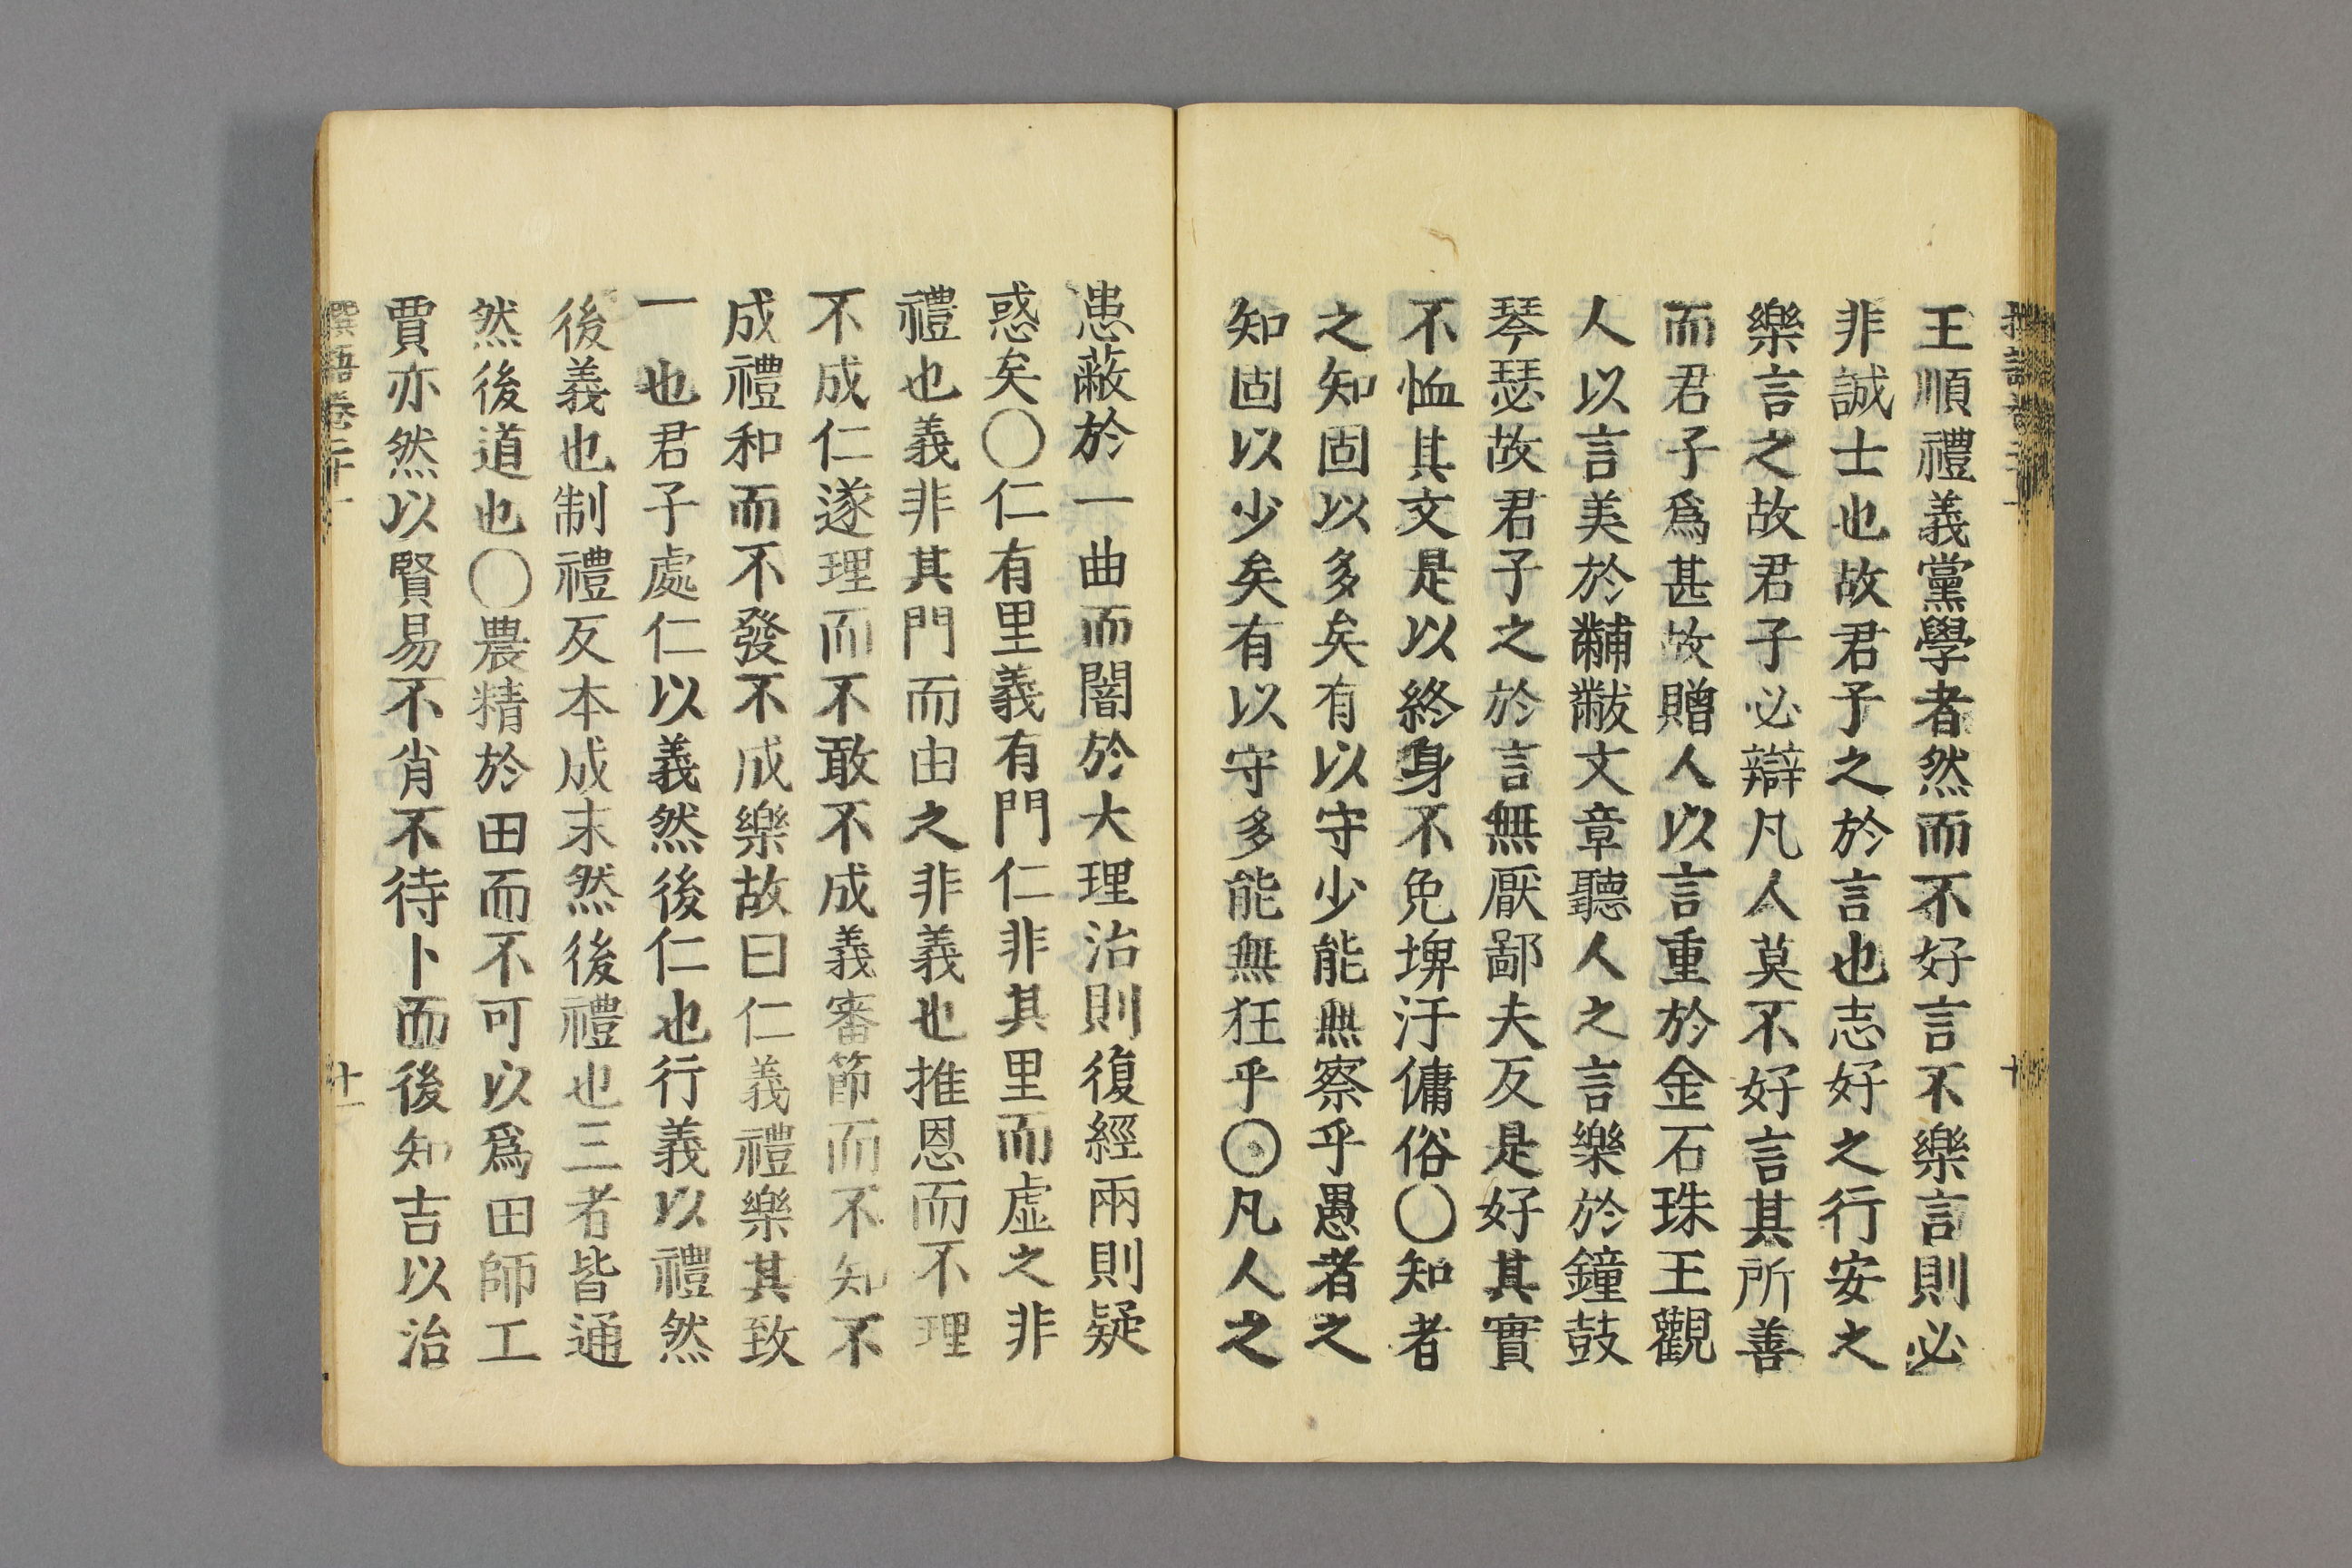 王順禮義黨學者然而不好言不樂言則必
非誠士也故君子之於言也志好之行安之
樂言之故君子必辯凡人莫不好言其所善
而君子爲甚故贈人以言重於金石珠王觀
人以言美於黼黻文章聽人之言樂於鐘鼓
琴瑟故君子之於言無厭鄙夫反是好其實
不恤其文是以終身不免埤汙傭俗〇知者
之知固以多矣有以守少能無察乎愚者之
知固以少矣有以守多能無狂乎〇凡人之
患蔽於一曲而闇於大理治則復經兩則疑
惑矣〇仁有里義有門仁非其里而虛之非
禮也義非其門而由之非義也推恩而不理
不成仁遂理而不敢不成義審節而不知不
成禮和而不發不成樂故曰仁義禮樂其致
一也君子處仁以義然後仁也行義以禮然
後義也制禮反本成末然後禮也三者皆通
然後道也〇農精於田而不可以爲田師工
賈亦然以賢易不肖不待卜而後知吉以治
撰語卷二十一
十一